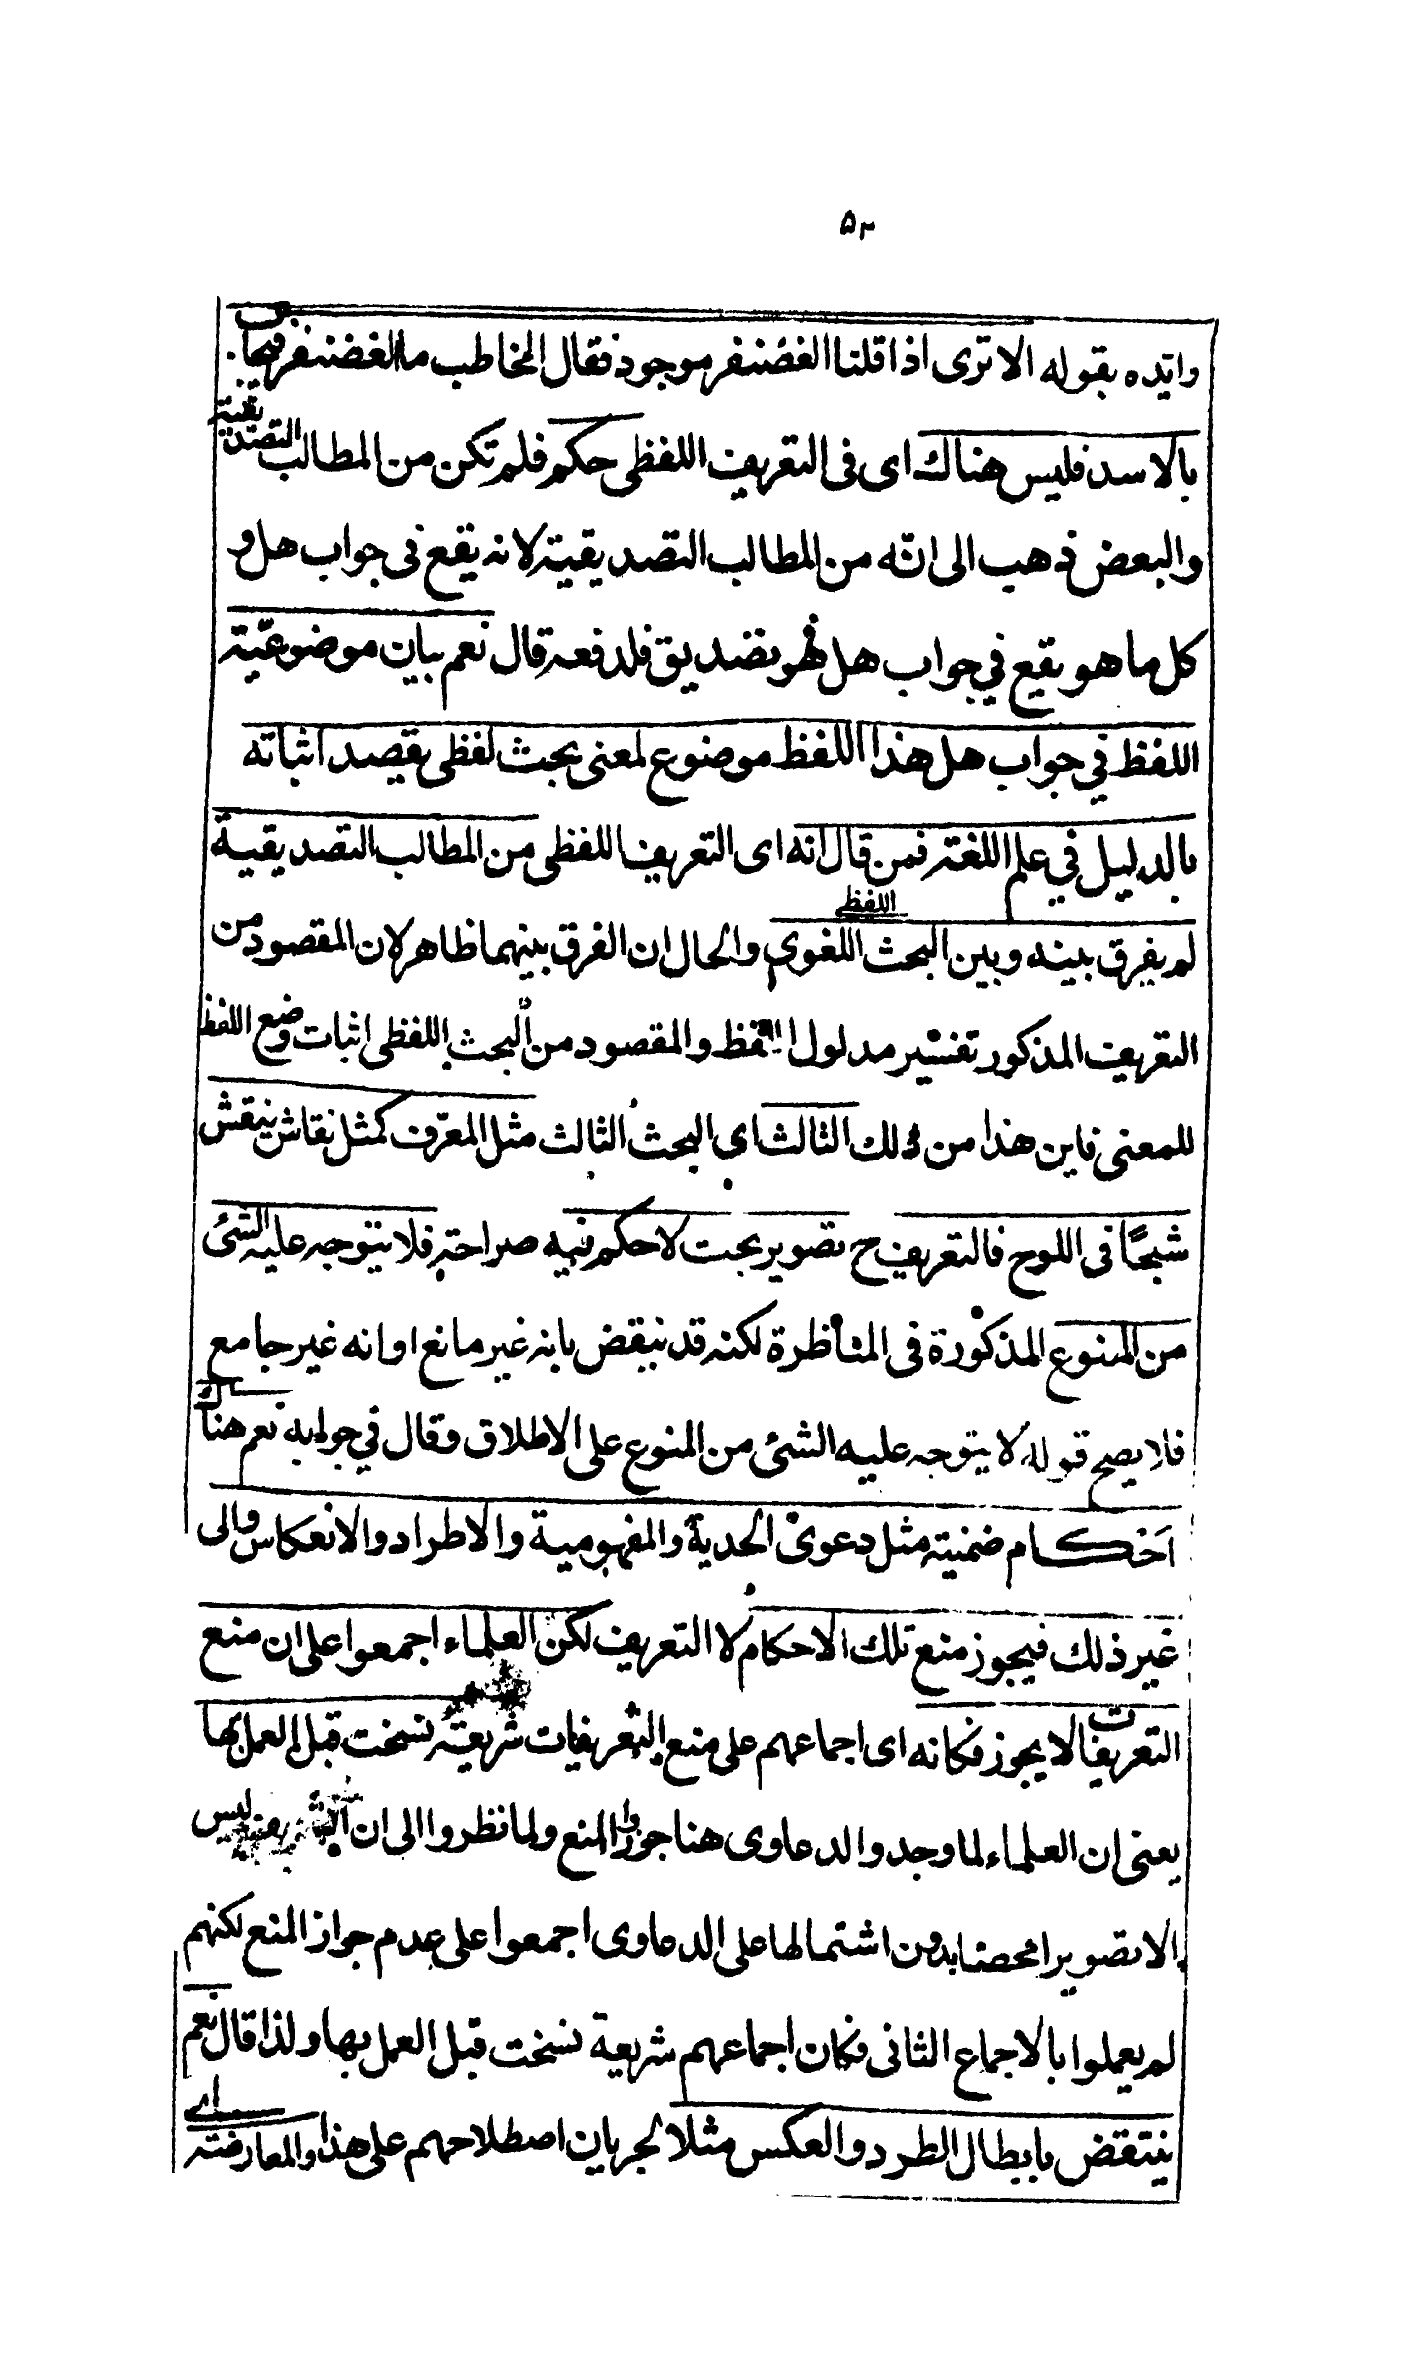 ۵۲
وايّده بقوله الا ترى اذا قلنا الغضنفر موجود فقال المخاطب ما الغضنفر فيجاب
بالاسد فليس هناك اى فى التعريف اللفظى حكم فلم تكن من المطالب التصديقية
والبعض ذهب الى انّه من المطالب التصديقية لانه يقع فى جواب هل و
كل ما هو يقع في جواب هل فهو تصديق فلدفعه قال نعم بيان موضوعيّة
اللفظ في جواب هل هذا اللفظ موضوع لمعنى بحث لفظى يقصد اثباته
بالدليل في علم اللغة فمن قال انه اى التعريف اللفظى من المطالب التصديقية
لم يفرق بينه وبين البحث اللغوى اللفظى والحال ان الفرق بينهما ظاهر لان المقصود من
التعريف المذكور تفسير مدلول اللفظ والمقصود من البحث اللفظى اثبات وضع اللفظ
للمعنى فاين هذا من ذلك الثالث اى البحث الثالث مثل المعرّف كمثل نقاش ينقش
شبحًا فى اللوح فالتعريف ح تصوير بحت لا حكم فيه صراحة فلا يتوجه عليه الشئ
من المنوع المذكورة فى المناظرة لكنه قد ينقض بانه غير مانع او انه غير جامع
فلا يصح قوله لا يتوجه عليه الشئ من المنوع على الاطلاق وقال في جوابه نعم هناك
احكام ضمنية مثل دعوى الحدية والمفهومية والاطراد والانعكاس والى
غير ذلك فيجوز منع تلك الاحكام لا التعريف لكن العلماء اجمعوا على ان منع
التعريفات لا يجوز فكانه اى اجماعهم على منع التعريفات شريعة نسخت قبل العمل بها
يعنى ان العلماء لما وجدوا الدعاوى هنا جوزوا المنع ولما نظروا الى ان التعريف ليس
الا تصويرا محضا بدون اشتمالها على الدعاوى اجمعوا على عدم جواز المنع لكنهم
لم يعملوا بالاجماع الثانى فكان اجماعهم شريعة نسخت قبل العمل بها ولذا قال نعم
ينتقض بابطال الطرد والعكس مثلا لجريان اصطلاحهم على هذا والمعارضة اى